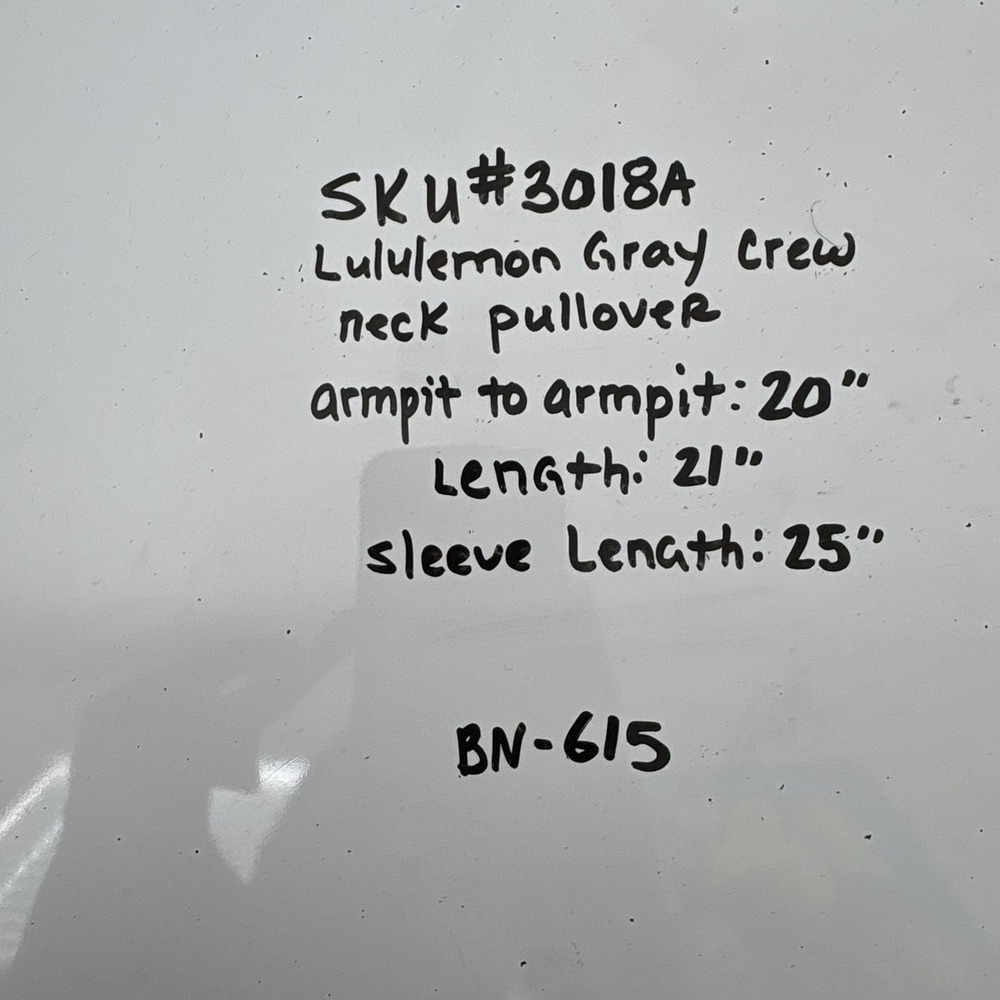 SKU#3018A
Lululemon Gray Crew
neck pullover
armpit to armpit: 20"
Length: 21"
sleeve Length: 25"
BN-615